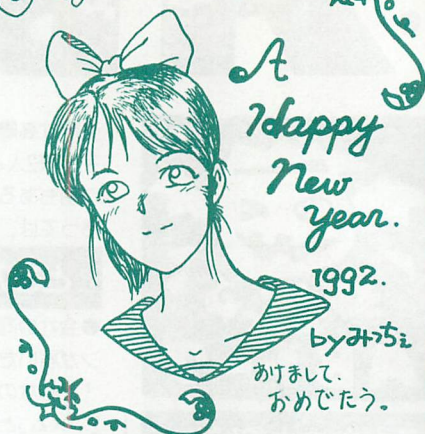 A
Happy
New
Year.
1992.
byみっちぇ
あけまして、
おめでたう。